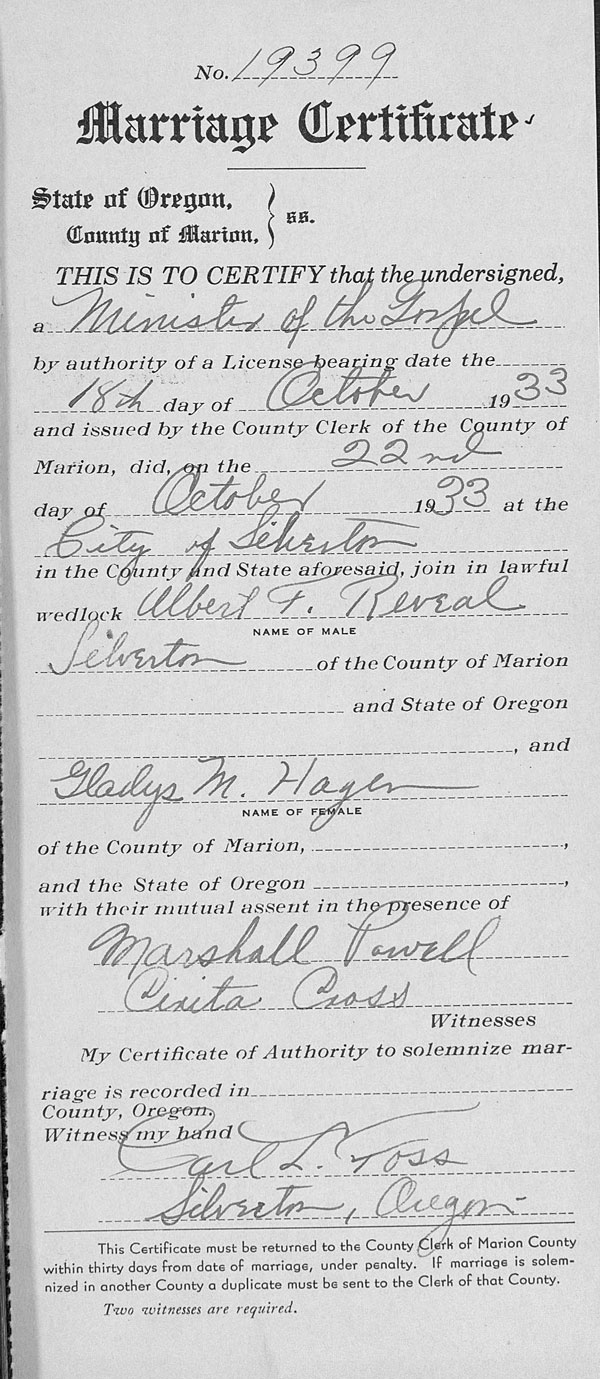 No. 19399
Marriage Certificate
State of Oregon,
County of Marion, } ss.
THIS IS TO CERTIFY that the undersigned,
a Minister of the Gospel
by authority of a License bearing date the
18th day of October 1933
and issued by the County Clerk of the County of
Marion, did, on the 22nd
day of October 1933 at the
City of Silverton
in the County and State aforesaid, join in lawful
wedlock Albert F. Reveal
NAME OF MALE
Silverton of the County of Marion
and State of Oregon
, and
Gladys M. Hagen
NAME OF FEMALE
of the County of Marion, ,
and the State of Oregon ,
with their mutual assent in the presence of
Marshall Powell
Cinita Cross
Witnesses
My Certificate of Authority to solemnize mar-
riage is recorded in
County, Oregon.
Witness my hand
Carl L. Foss
Silverton, Oregon
This Certificate must be returned to the County Clerk of Marion County
within thirty days from date of marriage, under penalty. If marriage is solem-
nized in another County a duplicate must be sent to the Clerk of that County.
Two witnesses are required.